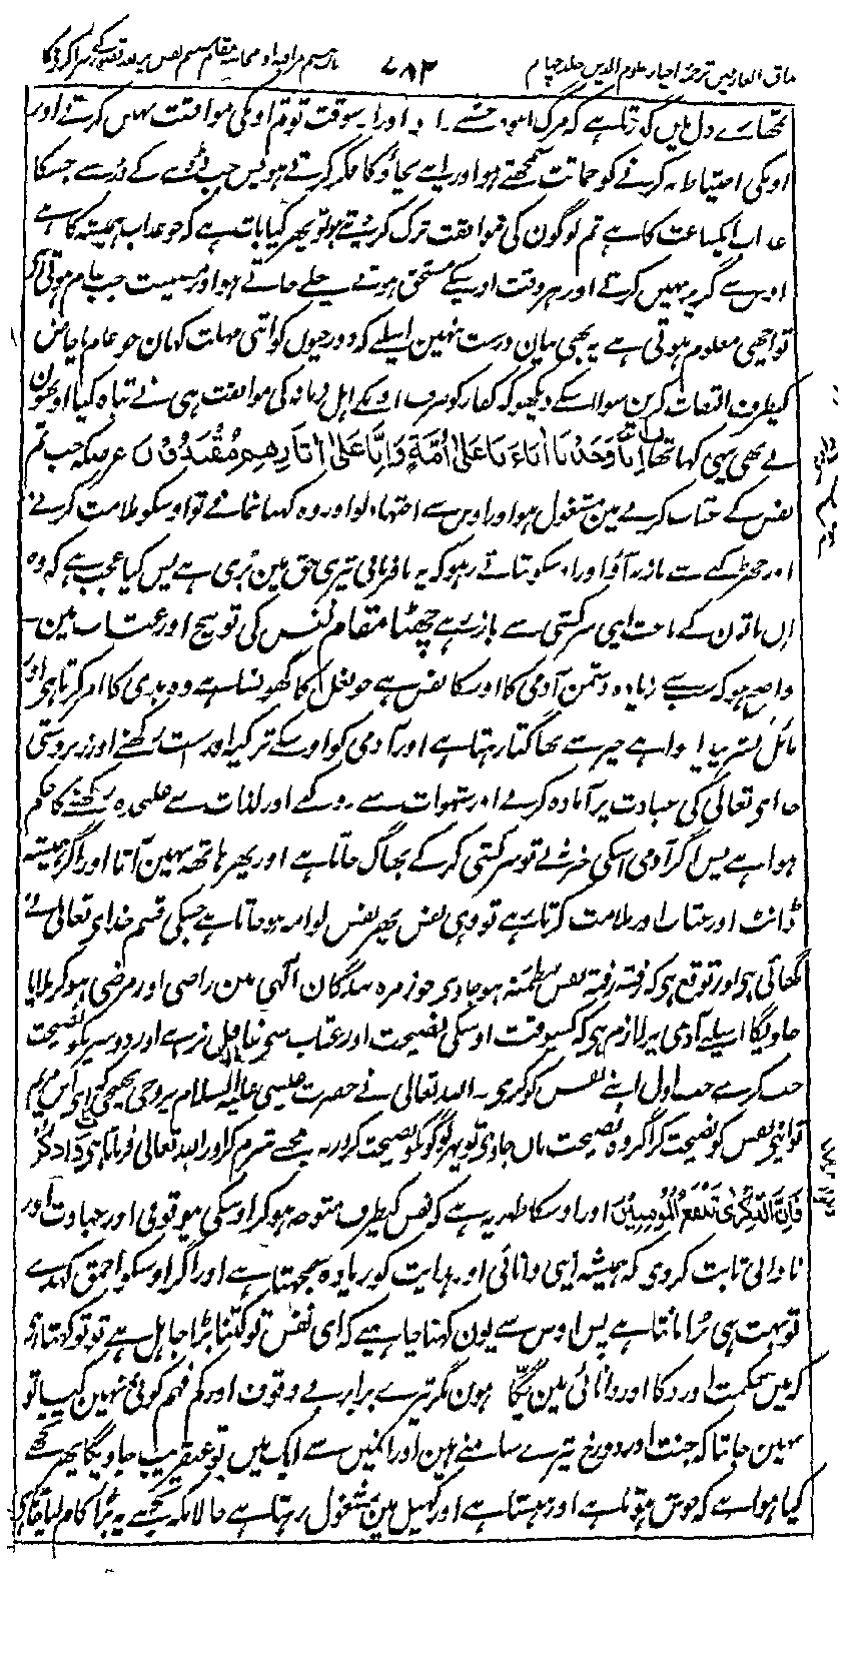 مذاق العارفین ترجمۂ احیاء علوم الدین جلد چہارم ۷۸۲ باب ہشتم مراقبہ و محاسبہ مقام
تمھارے دل میں گزرتا ہے کہ مرگ انبوہ جشنے دارد اور اسوقت تو تم اونکی موافقت نہیں کرتے اور
اونکی احتیاط نہ کرنے کو حماقت سمجھتے ہو اور اپنے بچاؤ کا فکر کرتے ہو پس جب ڈوبنے کے ڈر سے جسکا
عذاب ایکساعت کا ہے تم لوگون کی موافقت ترک کردیتے ہو تو پھر کیا بات ہے کہ جو عذاب ہمیشہ کا ہے
اوس سے گریز نہیں کرتے اور ہر وقت اوسکے مستحق ہوتے چلے جاتے ہو اور مصیبت جب عام ہوتی ہے
تو اچھی معلوم ہوتی ہے یہ بھی یہان درست نہین اسلیے کہ دوزخیوں کو اتنی مہلت کہان جو عام یا خاص
کیطرف التفات کرین سوا اسکے دیکھو کہ کفار کو صرف اونکے اہل زمانہ کی موافقت ہی نے تباہ کیا اور انھون
نے بھی یہی کہا تھا اِنَّا وَجَدْنَا اٰبَاءَنَا عَلٰی اُمَّةٍ وَاِنَّا عَلٰی اٰثَارِهِمْ مُقْتَدُوْنَ غرضکہ جب تم
نفس کے عتاب کرنے مین مشغول ہو اور اوس سے اجتہاد لو اور وہ کہنا نمانے تو اوسکو ملامت کرنے
اور جھڑکنے سے باز نہ آؤ اور اوسکو بتاتے رہو کہ یہ نافرمانی تیری حق مین بُری ہے پس کیا عجب ہے کہ وہ
ان باتون کے باعث اپنی سرکشی سے باز رہے چھٹا مقام نفس کی توبیخ اور عتاب مین
واضح ہو کہ سب سے زیادہ دشمن آدمی کا اوسکا نفس ہے جو بغل کا گھونسا ہے وہ بدی کا امر کرتا ہی اور
مائل بشر پیدا ہوا ہے خیر سے بھاگتا رہتا ہے اور آدمی کو اوسکے تزکیہ اور راست رکھنے اور زبردستی
خدای تعالی کی عبادت پر آمادہ کرنے اور شہوات سے روکنے اور لذات سے علیحدہ رکھنے کا حکم
ہوا ہے پس اگر آدمی اسکی خبر نے تو سرکشی کرکے بھاگ جاتا ہے اور پھر ہاتھ نہین آتا اور اگر ہمیشہ
ڈانٹ اور عتاب اور ملامت کرتا رہے تو وہی نفس پھر نفس لوامہ ہو جاتا ہے جسکی قسم خدای تعالی نے
کھائی ہی اور توقع ہی کہ رفتہ رفتہ نفس مطمئنہ ہو جاوی جو زمرۂ بندگان الٰہی مین راضی اور مرضی ہو کر بلایا
جاویگا اسیلے آدمی پر لازم ہی کہ کسیوقت اوسکی نصیحت اور عتاب سے غافل نرہے اور دوسریکو نصیحت
جب کرے جب اول اپنے نفس کو کری۔ اللہ تعالی نے حضرت عیسی علیہ السلام پر وحی بھیجی کہ ای ابن مریم
تو اپنے نفس کو نصیحت کر اگر وہ نصیحت مان جاوی تو پھر لوگونکو نصیحت کر ورنہ مجھسے شرم کر اور اللہ تعالی فرماتا ہی وَذَكِّرْ
فَاِنَّ الذِّكْرٰی تَنْفَعُ الْمُؤْمِنِیْنَ اور اوسکا طریہ ہے کہ نفس کیطرف متوجہ ہو کر اوسکی بیوقوفی اور جہالت اور
نادانی ثابت کر دی کہ ہمیشہ اپنی دانائی اور ہدایت کو زیادہ سمجھتا ہے اور اگر اوسکو احمق کہدے
تو بہت ہی بُرا مانتا ہے پس اوس سے یون کہنا چاہیے کہ ای نفس تو کتنا بڑا جاہل ہے تو تو کہتا ہی
کہ میں حکمت اور ذکا اور دانائی مین یکتا ہون مگر تیرے برابر بے وقوف اور کم فہم کوئی نہین کیا تو
نہین جانتا کہ جنت اور دوزخ تیرے سامنے ہین اور انہیں سے ایک میں تو عنقریب جاویگا پھر تجھے
کیا ہوا ہے کہ خوش ہوتا ہے اور ہنستا ہے اور کھیل مین مشغول رہتا ہے حالانکہ تجھسے یہ بڑا کام لیا جاتا ہی